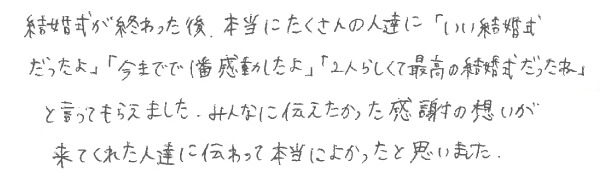 結婚式が終わった後、本当にたくさんの人達に「いい結婚式
だったよ」「今までで1番感動したよ」「2人らしくて最高の結婚式だったね」
と言ってもらえました。みんなに伝えたかった感謝の想いが
来てくれた人達に伝わって本当によかったと思いました。